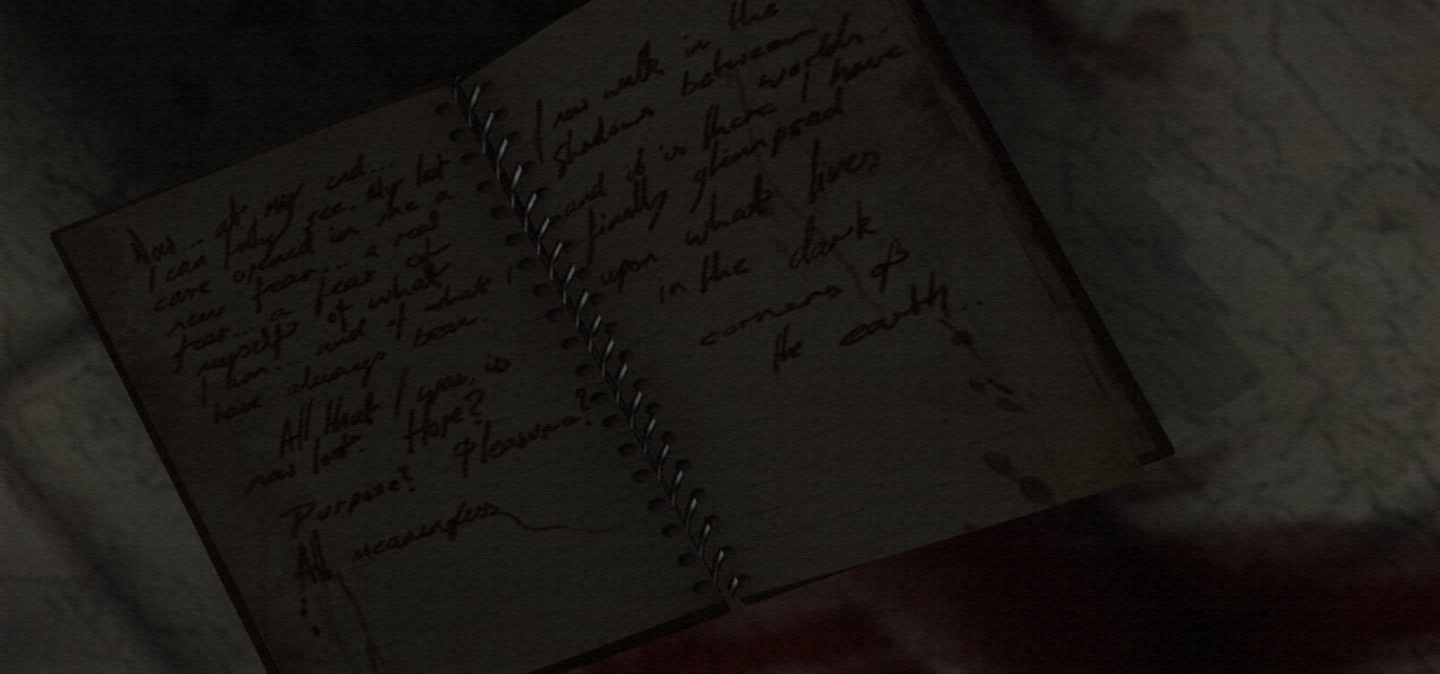 Now... at my end...
I can fully see. My last
case opened in me a
new fear... a real
fear... a fear of
myself of what
I am... and of what I
have always been.
All that I was, is
now lost. Hope?
Purpose? Pleasure?
All meaningless
I now walk in the
shadows between
and it is there I have
worlds.
finally glimpsed
upon what lives
in the dark
corners of
the earth...